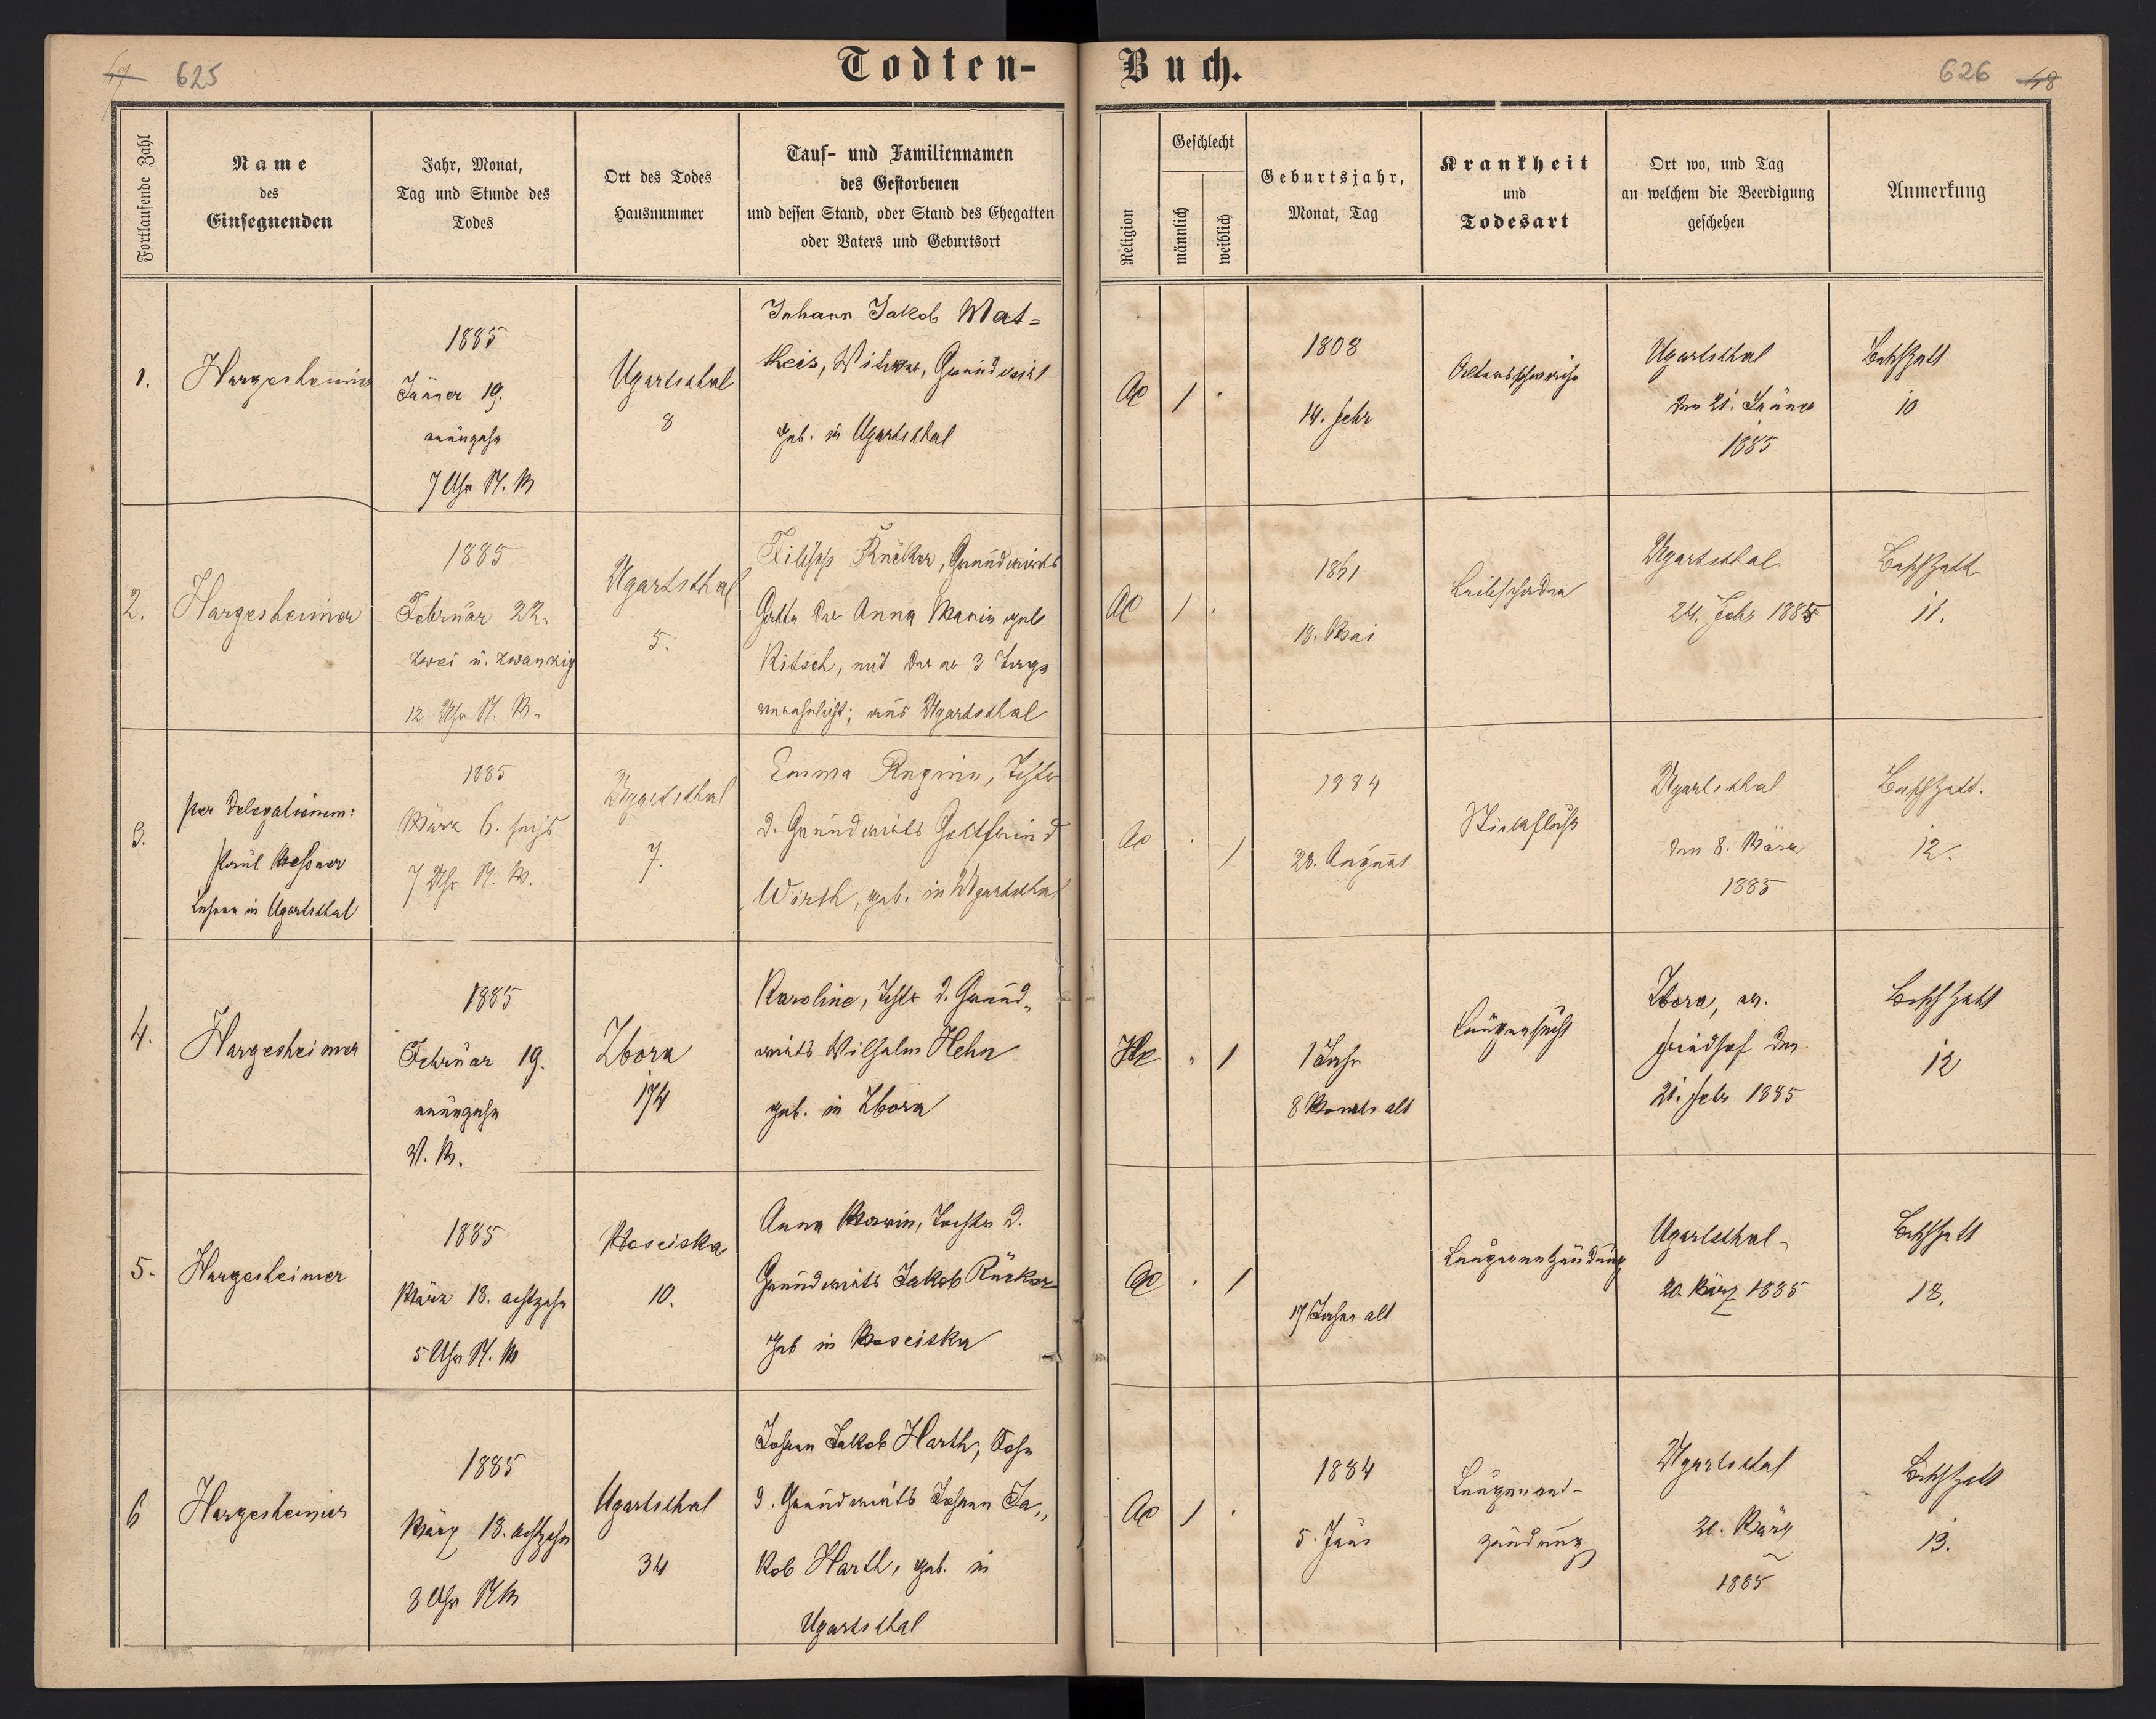 67 625
Todten-
Buch.
626 68
Fortlaufende Zahl
Name
des
Einsegnenden
Jahr, Monat,
Tag und Stunde des
Todes
Ort des Todes
Hausnummer
Tauf- und Familiennamen
des Gestorbenen
und dessen Stand, oder Stand des Ehegatten
oder Vaters und Geburtsort
Religion
Geschlecht
männlich
weiblich
Geburtsjahr,
Monat, Tag
Krankheit
und
Todesart
Ort wo, und Tag
an welchem die Beerdigung
geschehen
Anmerkung
1.
Hargesheimer
1885
Jänner 19.
neunzehn
7 Uhr N. M
Ugartsthal
8
Johann Jakob Mat=
theis, Witwer, Grundwirt
geb. in Ugartsthal
AC
1
1808
14. Febr
Altersschwäche
Ugartsthal
den 21. Jänner
1885
10
2.
Hargesheimer
1885
Februar 22.
zwei u. zwanzig
12 Uhr N. M.
Ugartsthal
5.
Filipp Rücker, Grundwirth
Gatte der Anna Maria geb
Kitsch, mit der er 3 Tage
verehelicht; aus Ugartsthal
AC
1
1861
18. Mai
Leibschaden
Ugartsthal
24. Febr 1885
11.
3.
per Delegationem:
Paul Messner
Lehrer in Ugartsthal
1885
März 6. sechs
7 Uhr N. M.
Ugartsthal
7.
Emma Regina, Tochter
d. Grundwirts Gottfried
Wirth, geb. in Ugartsthal
AC
1
1884
28. August
Stickfluß
Ugartsthal
den 8. März
1885
12.
4.
Hargesheimer
1885
Februar 19.
neunzehn
V. M.
Zbora
174
Karoline, Tochter d. Grund-
wirts Wilhelm Hehn
geb. in Zbora
HC
1
1 Jahr
8 Monate alt
Lungensucht
Zbora, ev.
Friedhof den
21. Febr 1885
12
5.
Hargesheimer
1885
März 18. achtzehn
5 Uhr N. M
Mosciska
10.
Anna Maria, Tochter d.
Grundwirts Jakob Rücker
geb in Mosciska
AC
1
17 Jahre alt
Lungenentzündung
Ugartsthal
20. März 1885
6
Hargesheimer
1885
März 18. achtzehn
3 Uhr N M
Ugartsthal
34
Johann Jakob Harth, Sohn
d. Grundwirts Johann Ja„
kob Harth, geb. in
Ugartsthal
AC
1
1884
Lungenent-
zündung
Ugartsthal
20. März
1885
13.